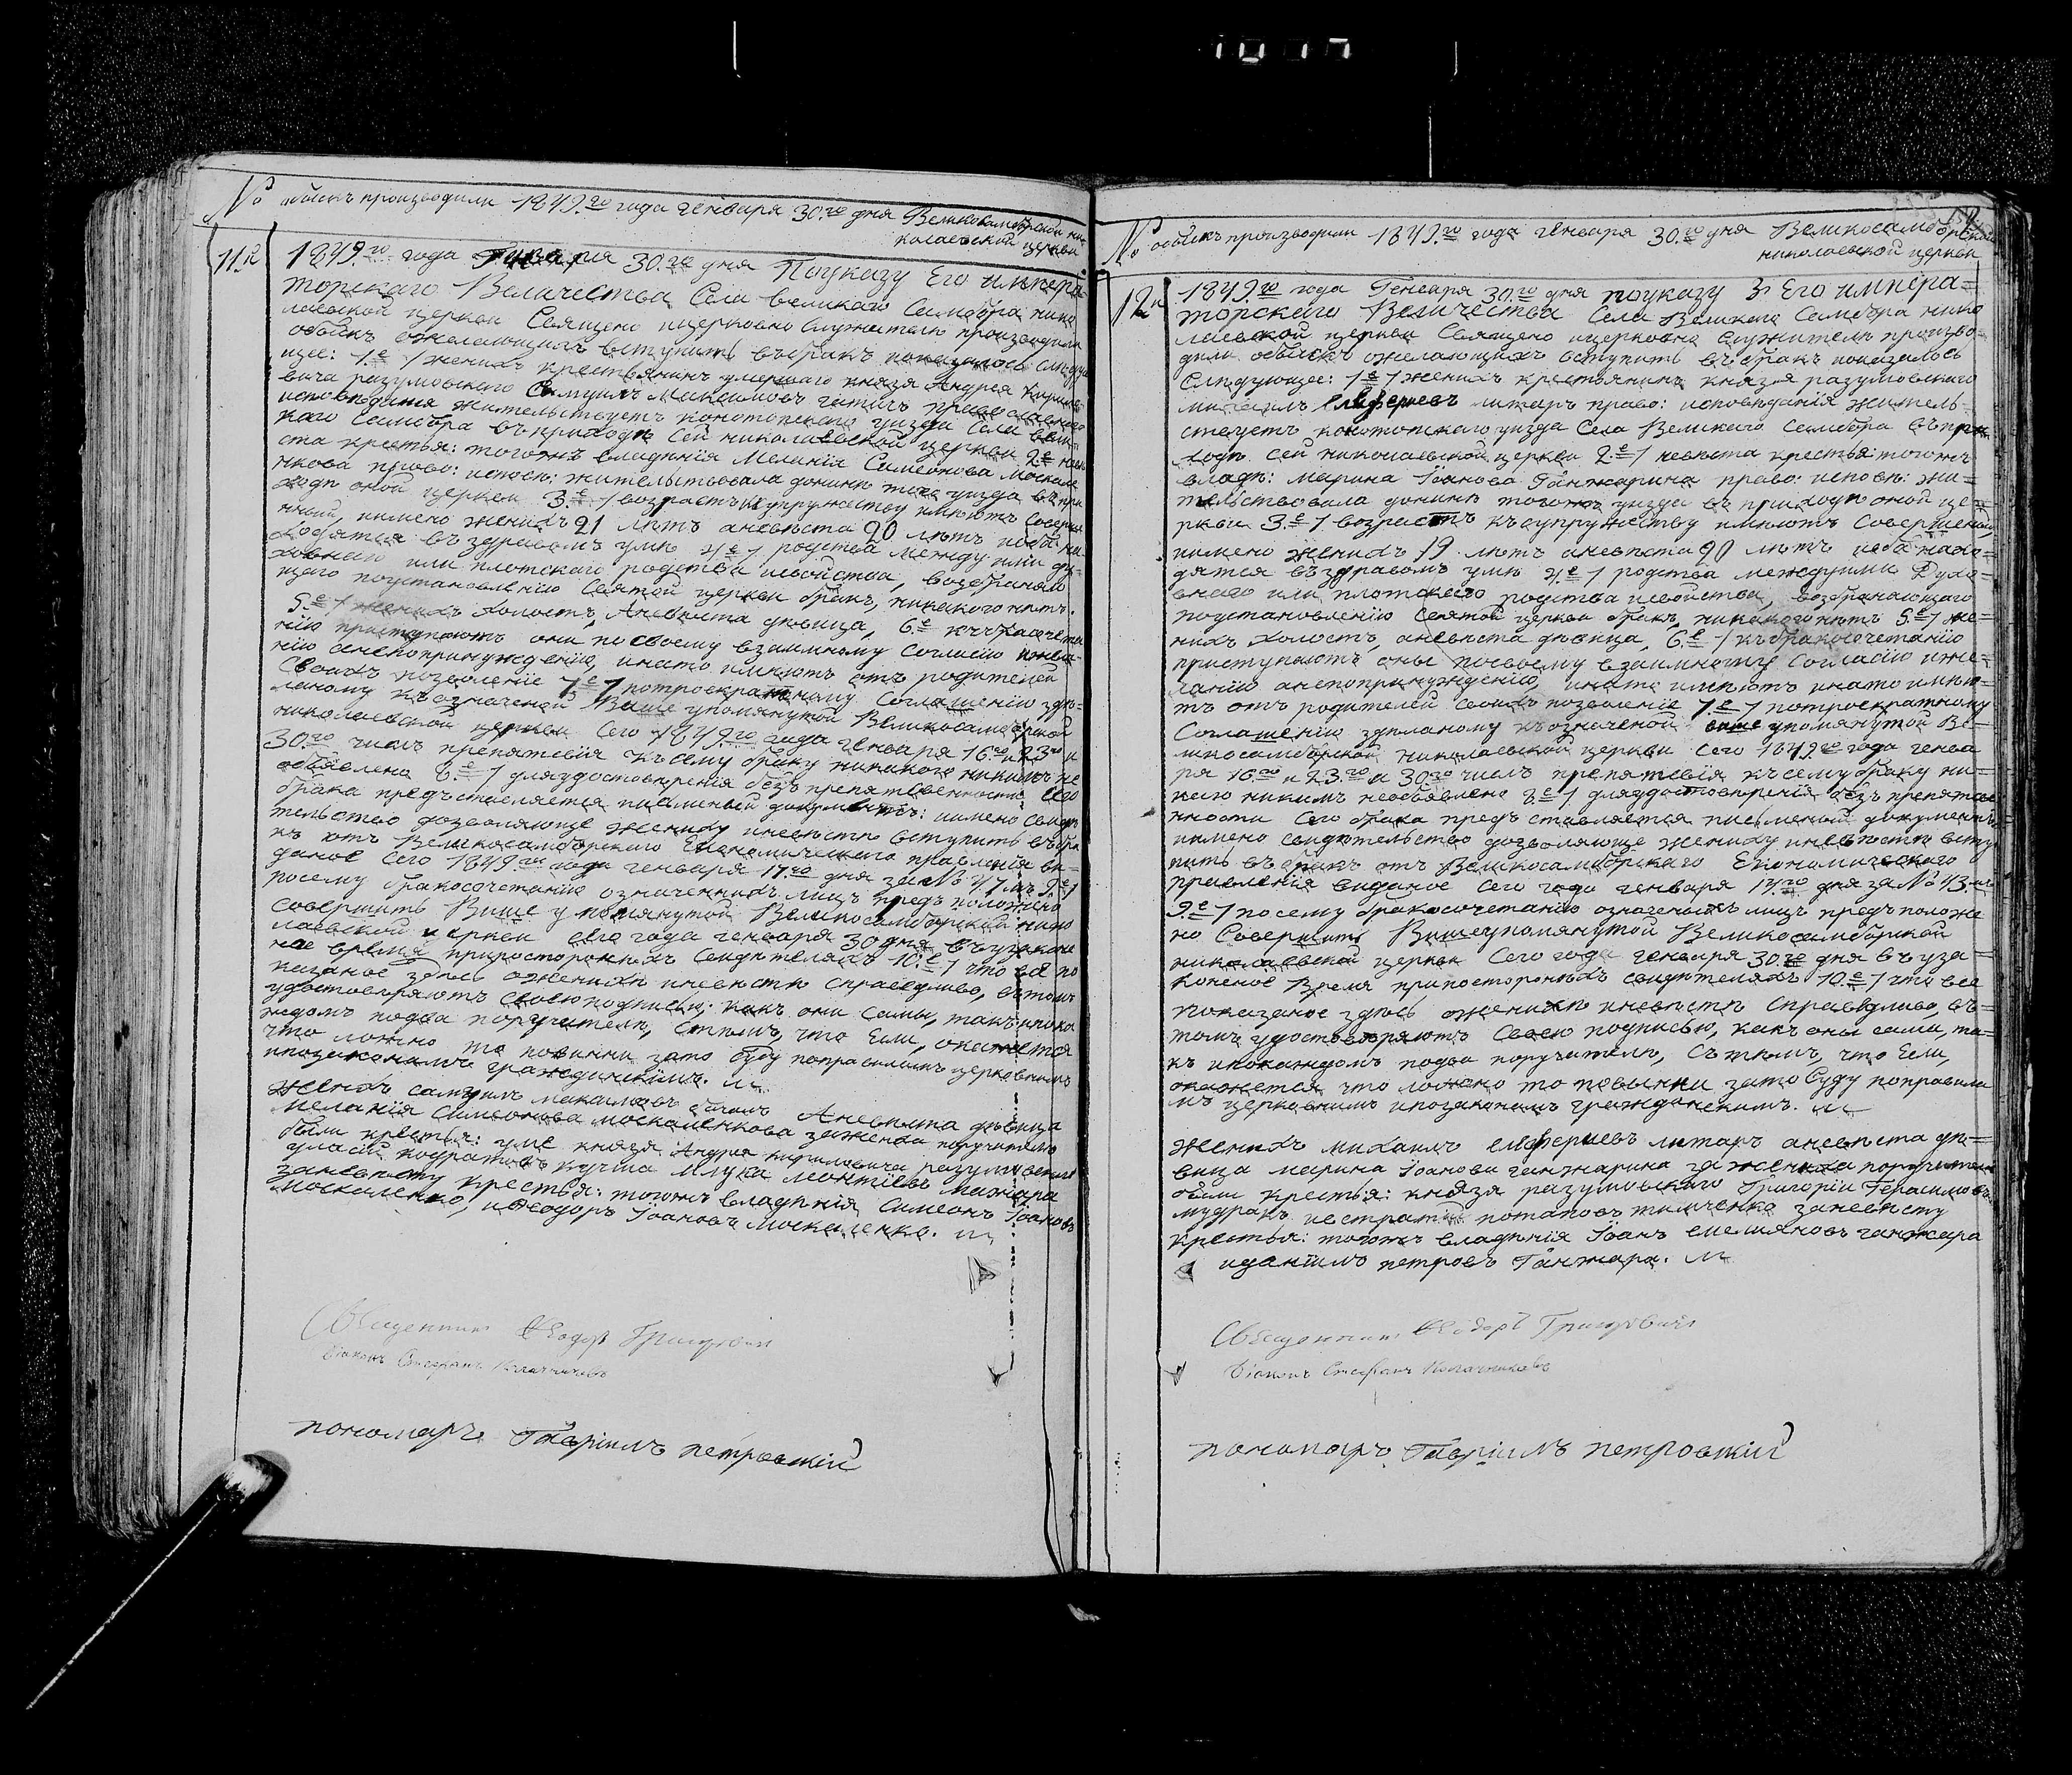 № обыскъ производили 1849.го года Генваря 30.го дня Великосамборской ни-
колаевской церкви
11.й
1849.го года Генваря 30.го дня Поуказу Его импера
торскаго Величества Села великаго Самбора нико
лаевской церкви Священо ицерковно Служители производили
обыскъ ожелающихъ вступить въбракъ показалось слѣдую
щее: 1е/ женихъ крестьянинъ умершаго князя Андрея Кирило
вича разумовского Самуилъ Максимовъ православнаго
исповѣданія жительствуетъ конотопскаго уизда Села вели
каго Самбора въприходѣ Сей николаевской церкви 2е невѣ
ста крестья: тогожъ владѣнія Меланія Симеонова Москале
нкова право: исповѣ: жительствовала донинѣ того уизда въпри
ходѣ оной церкви 3.е/ возрастъ ксупружеству имѣютъ соверше
нный, имено женихъ 21 лѣтъ аневѣста 20 лѣтъ иоба на
ходятся въздравомъ умѣ 4е/ родства между ими ду
ховнаго или плотскаго родства исвойства, возбраняю
щаго поустановленію Святой церкви бракъ, никакого нѣтъ.
5.е/ женихъ холостъ, Аневѣста дѣвица, 6.е къбракосочета
нію приступаютъ они по своему взаимному согласію ижела
нію анепопринужденію, инато имѣютъ отъ родителей
своихъ позволеніе 7е/ потроекратному Соглашенію здѣ-
ланому къозначеной Више упомянутой Великосамборской
николаевской церкви Сего 1849.го года генваря 16.го и 23.го и
30.го числъ препятствія къ сему браку никакого никимъ не
обявлено 8.е/ дляудостовѣренія безъпрепятственности сего
брака предъставляется писменый документъ: имено свидѣ
тельство дозволяюще жениху иневѣсте вступить въбра
къ отъ Великосамборскаго Економическаго правленія ви-
даное сего 1849.го года генваря 17.го дня за№ 47мъ 9.е/
посему бракосочетанію означеннихъ лицъ предъположено
совершить Више упомянутой Великосамборской нико
лаевской церкви сего года генваря 30 дня въузаконе
ное время припосторонихъ Свидѣтеляхъ 10.е/ что всё по
казаное здѣсь оженихѣ иневѣстѣ справедливо, въ томъ
удостовѣряютъ своею подписью; какъ они сами, такъ ипока
ждомъ подва поручителя, стѣмъ, что Если, окажется
что ложно то повинни зато буду поправиламъ церковнимъ
ипозаконамъ гражданскимъ.
женихъ самуилъ максимовъ Аневѣста дѣвица
меланія симеонова москаленкова заженха поручителѣ
били крестья: уме князя Андрея кириловича разумовского
кучма Илука леонтіевъ
заневѣсту крестья: тогожъ владѣнія Симеонъ Іоановъ
москаленко, иѲеодоръ Іоановъ Москаленко.
Священникъ Ѳеодоръ Григоровичъ
Діаконъ Стефанъ
пономаръ Гавріилъ петровскій
№ обыскъ производили 1849.го года генваря 30.го дня Великосамборской
николаевской церкви
12й
1849.го года Генваря 30.го дня поуказу Его импера=
торскаго Величества Села Великаго Самбора нико
лаевской церкви Священо ицерковно Служители произво
дили обыскъ ожелающихъ вступить въбракъ показалось
Слѣдующее: 1е/ женихъ крестьянинъ князя разумовскаго
михаилъ Елеферіевъ литаръ право: исповѣданія житель
ствуетъ конотопскаго уизда Села Великаго Самбора въпри
ходѣ сей николаевской церкви 2.е/ невѣста крестья: тогожъ
владѣ: марина Іоанова Ганжарина право: исповѣ: жи=
тельствовала донинѣ тогожъ уизда въ приходѣ оной це=
ркви 3.е/ возрастъ къ супружеству имѣютъ Совершеный,
имено женихъ 19 лѣтъ аневѣста 20 лѣтъ иоба нахо=
дятся въздравомъ умѣ 4е/ родства междуими Духо=
внаго или плотскаго родства исвойства, возбраняющаго
поустановленію Святой церкви бракъ никакогонѣтъ 5.е/ же=
нихъ холостъ, аневѣста дѣвица, 6.е/ къбракосочетанію
приступаютъ оны посвоему взаимному согласію иже=
ланію анепопринужденію, инато имѣютъ инато имѣю=
тъ отъ родителей своихъ позволеніе 7е/ потроекратному
Соглашенію здѣланому къозначеной више упомянутой Ве=
ликосамборской николаевской церкви сего 1849.го года генва
ря 16.го и 23.го и 30.го числъ препятствія къ сему браку ни=
какого никимъ необявлено 8е/ дляудостовѣренія безъ препятстве
нности сего брака предъставляется писменой документъ
имено свидѣтельство дозволяюще жениху иневѣсте всту
пить въ бракъ отъ Великосамборскаго Економическаго
правленія виданое сего года генваря 17.го дня за № 43.мъ
9.е/ посему бракосочетанію означеныхъ лицъ предъположе
но Совершить Вишеупомянутой Великосамборской
николаевской церкви Сего года генваря 30.го дня въуза=
коненое Время припосторонихъ свидѣтеляхъ 10.е/ что все
показаное здѣсь оженихѣ иневѣстѣ справедливо, въ=
томъ удостовѣряютъ Своею подписью, какъ оны сами, та=
къ ипокаждомъ подва поручителѣ, Съ тѣмъ, что Если,
окажется что ложно то повинни зато буду поправила
мъ церковнимъ ипозаконамъ гражданскимъ.
женихъ михаилъ елеферіевъ литаръ аневѣста дѣ=
вица марина Іоанова ганжарина за жениха поручители
били крестья: князя разумовскаго Григоріи Герасимовъ
мудракъ иестратій потаповъ тимченко заневѣсту
крестья: тогожъ владѣнія Іоанъ емельяновъ ганжара
иданіилъ петровъ Ганжара.
Священникъ Ѳеодоръ Григоровичъ
Діаконъ Стефанъ
пономаръ Гавріилъ петровскій